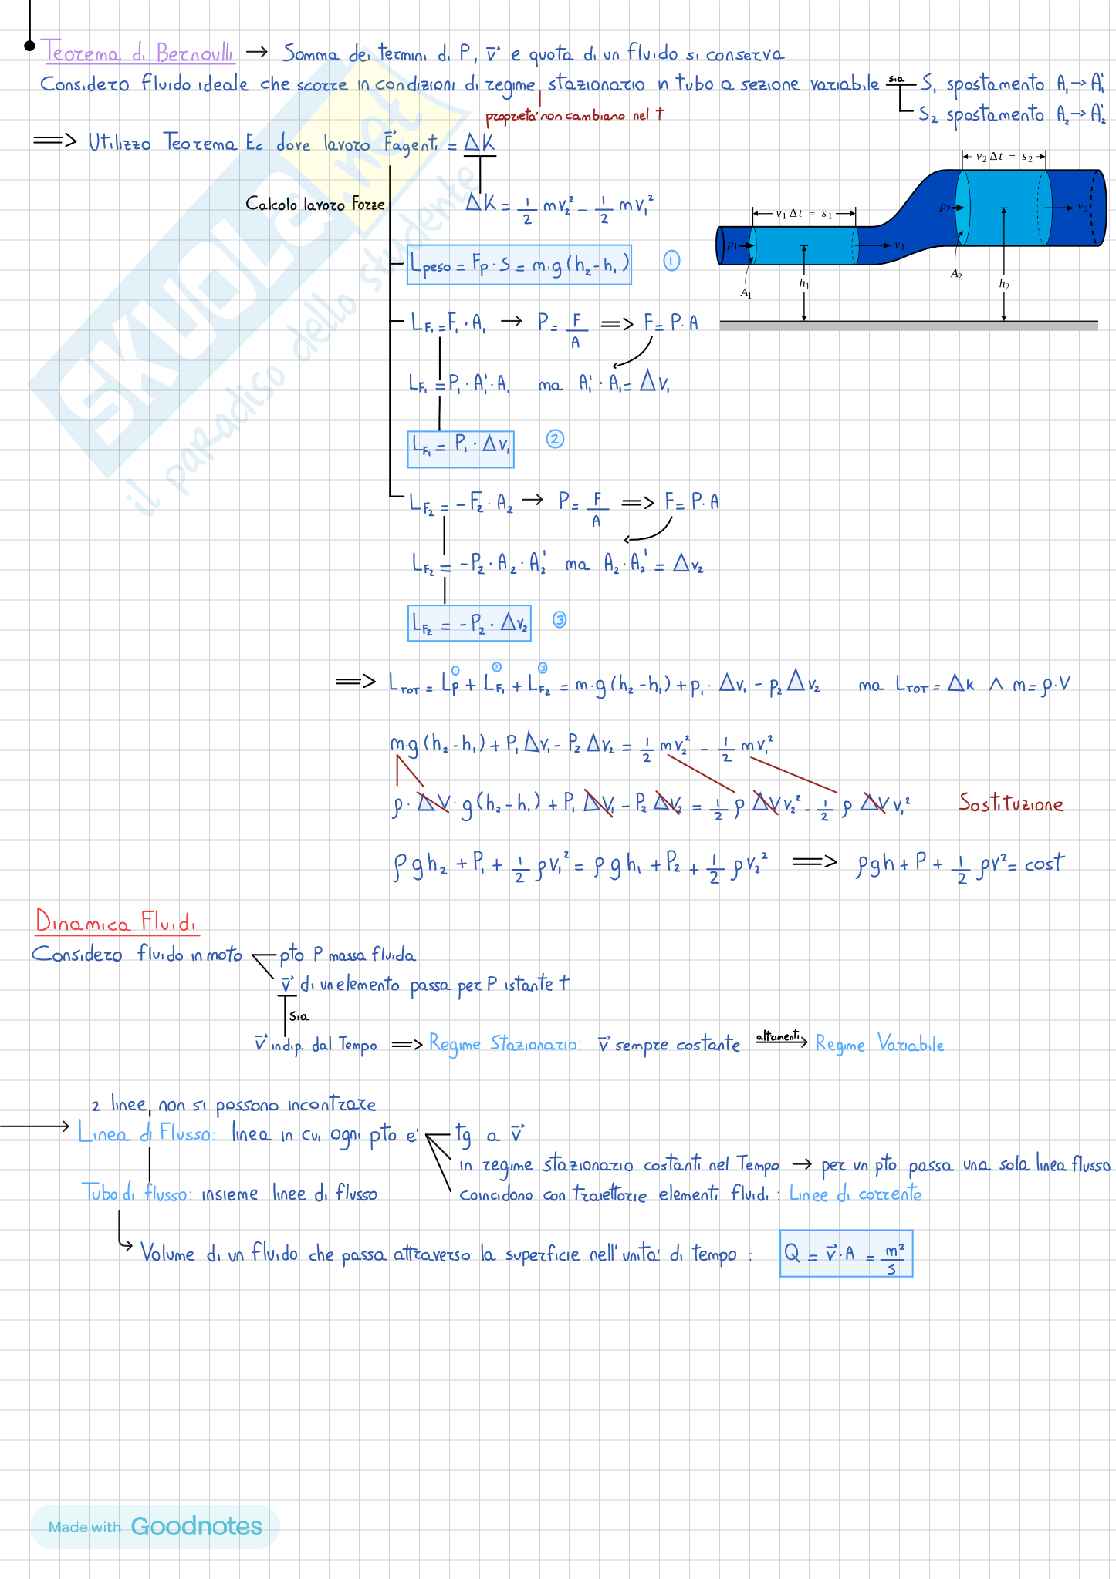 Teorema di Bernoulli → Somma dei termini di P, v⃗ e quota di un fluido si conserva
Considero fluido ideale che scorre in condizioni di regime stazionario in tubo a sezione variabile sia S₁ spostamento A₁→A₁'
S₂ spostamento A₂→A₂'
proprietà non cambiano nel t
=> Utilizzo Teorema Ec dove lavoro F⃗agenti = ΔK
v₂Δt = s₂
Calcolo lavoro Forze
ΔK = 1/2 mv₂² - 1/2 mv₁²
v₁Δt = s₁
p₂ v₂
p₁ v₁
Lpeso = Fp · S = m·g(h₂-h₁) ①
A₂
h₁ h₂
A₁
L_F₁ = F₁ · A₁ → P = F/A => F = P·A
L_F₁ = P₁ · A₁' · A₁ ma A₁' · A₁ = Δv₁
L_F₁ = P₁ · Δv₁ ②
L_F₂ = -F₂ · A₂ → P = F/A => F = P·A
L_F₂ = -P₂ · A₂ · A₂' ma A₂ · A₂' = Δv₂
L_F₂ = -P₂ · Δv₂ ③
=> L_TOT = Lp① + L_F₁② + L_F₂③ = m·g(h₂-h₁) + p₁ · Δv₁ - p₂ Δv₂ ma L_TOT = Δk ∧ m = ρ·V
mg(h₂-h₁) + P₁Δv₁ - P₂Δv₂ = 1/2 mv₂² - 1/2 mv₁²
ρ · ΔV · g(h₂-h₁) + P₁ Δv₁ - P₂ Δv₂ = 1/2 ρ ΔV v₂² - 1/2 ρ ΔV v₁² Sostituzione
ρgh₂ + P₁ + 1/2 ρv₁² = ρgh₁ + P₂ + 1/2 ρv₂² => ρgh + P + 1/2 ρv² = cost
Dinamica Fluidi
Considero fluido in moto pto P massa fluida
v⃗ di un elemento passa per P istante t
sia
v⃗ indip. dal Tempo => Regime Stazionario v⃗ sempre costante altrimenti → Regime Variabile
2 linee, non si possono incontrare
→ Linea di Flusso: linea in cui ogni pto è tg a v⃗
in regime stazionario costanti nel Tempo → per un pto passa una sola linea flusso
Tubo di flusso: insieme linee di flusso coincidono con traiettorie elementi fluidi: Linee di corrente
Volume di un fluido che passa attraverso la superficie nell'unità di tempo: Q = v⃗·A = m²/s
SKUOLA.net
il paradiso dello studente
Made with Goodnotes